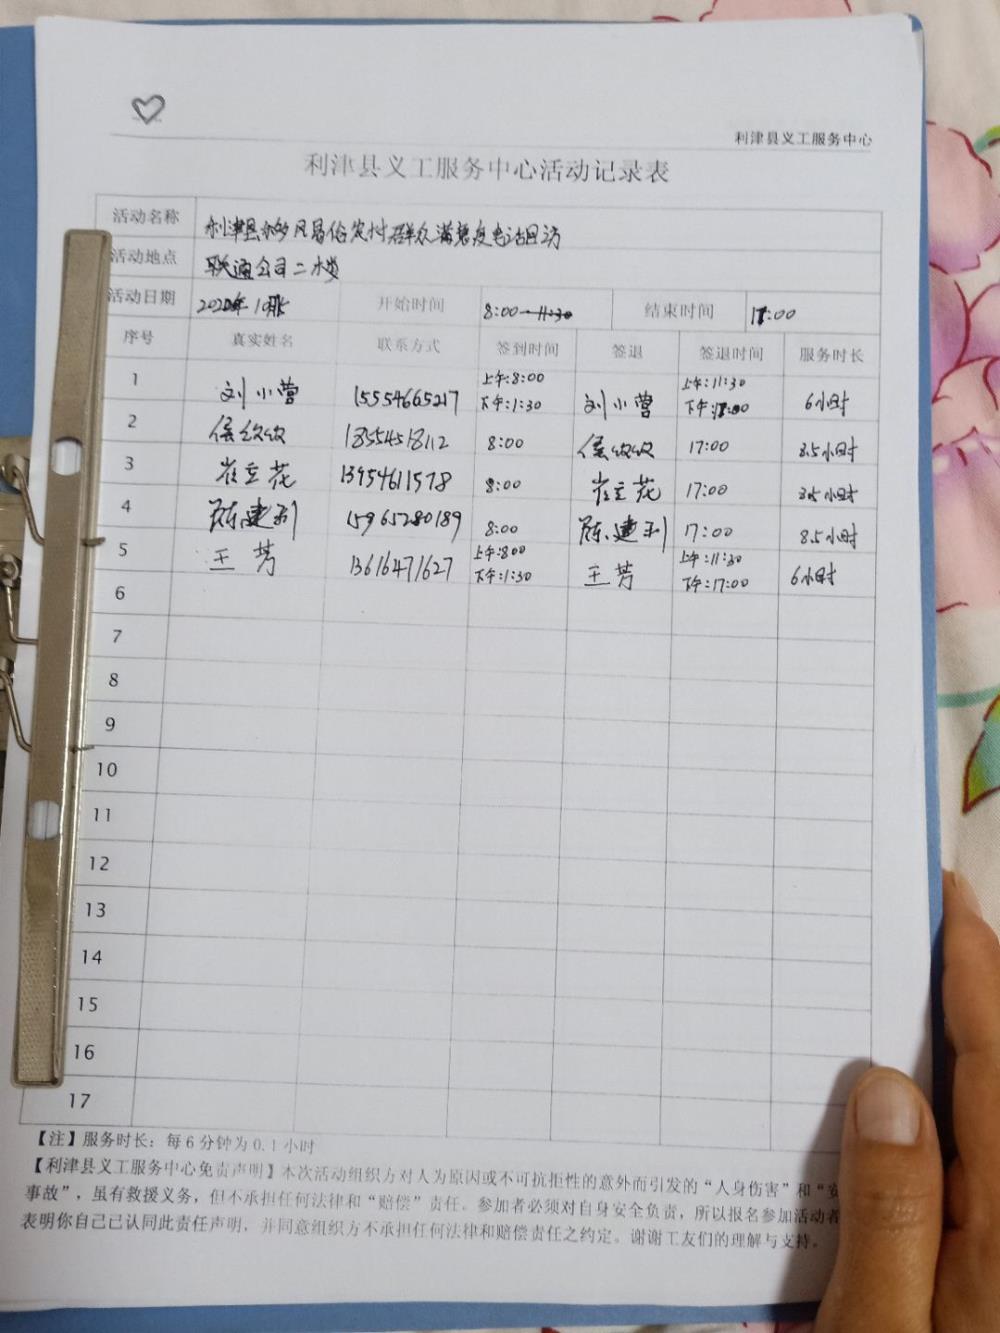 利津县义工服务中心
利津县义工服务中心活动记录表
活动名称 利津县移风易俗农村群众满意度电话回访
活动地点 联通公司二楼
活动日期 2020年10月 开始时间 8:00-11:30 结束时间 17:00
序号 真实姓名 联系方式 签到时间 签退 签退时间 服务时长
1 刘小营 15554665217 上午:8:00 下午:1:30 刘小营 上午:11:30 下午:17:00 6小时
2 侯姣姣 18554518112 8:00 侯姣姣 17:00 8.5小时
3 崔立花 13954611578 8:00 崔立花 17:00 8.5小时
4 陈建利 15965280189 8:00 陈建利 17:00 8.5小时
5 王芳 13616471627 上午:8:00 下午:1:30 王芳 上午:11:30 下午:17:00 6小时
6
7
8
9
10
11
12
13
14
15
16
17
【注】服务时长：每6分钟为0.1小时
【利津县义工服务中心免责声明】本次活动组织方对人为原因或不可抗拒性的意外而引发的“人身伤害”和“安
事故”，虽有救援义务，但不承担任何法律和“赔偿”责任。参加者必须对自身安全负责，所以报名参加活动者
表明你自己已认同此责任声明，并同意组织方不承担任何法律和赔偿责任之约定。谢谢工友们的理解与支持。